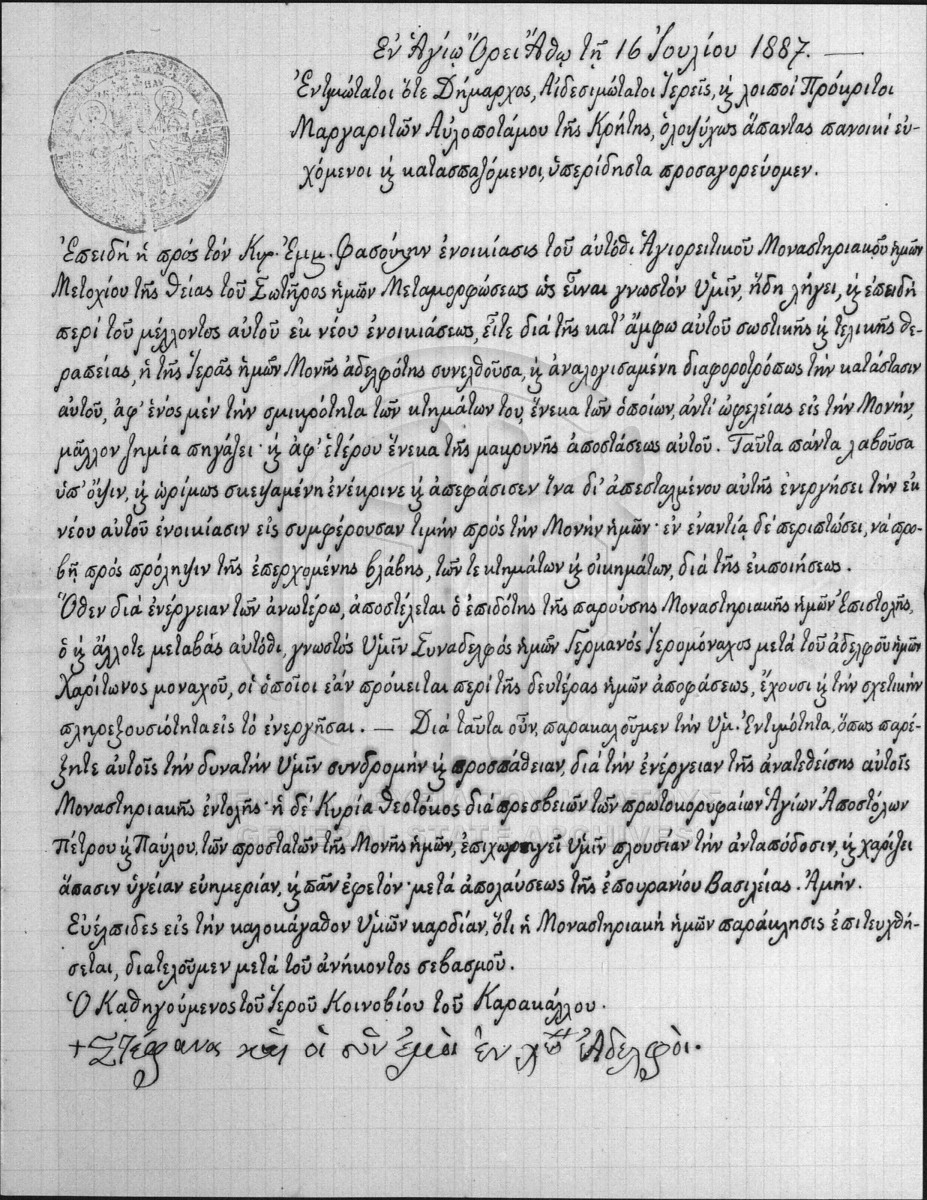 Ἐν Ἁγίῳ Ὄρει Ἄθῳ τῇ 16 Ἰουλίου 1887. —
Ἐντιμώτατοι ὅτε Δήμαρχος, Αἰδεσιμώτατοι Ἱερεῖς, ϗ λοιποί Πρόκριτοι
Μαργαριτῶν Αὐλοποτάμου τῆς Κρήτης, ὁλοψύχως ἅπαντας πανοικί εὐ-
χόμενοι ϗ κατασπαζόμενοι, ὑπερίδηστα προσαγορεύομεν.
Ἐπειδή ἡ πρός τόν Κυρ. Ἐμμ. ἐνοικίασις τοῦ αὐτόθι Ἁγιορειτικοῦ Μοναστηριακοῦ ἡμῶν
Μετοχίου τῆς θείας τοῦ Σωτῆρος ἡμῶν Μεταμορφώσεως ὡς εἶναι γνωστόν Ὑμῖν, ἤδη λήγει, ϗ ἐπειδή
περί τοῦ μέλλοντος αὐτοῦ ἐκ νέου ἐνοικιάσεως, εἶτε διά τῆς κατ' ἄμφω αὐτοῦ σωστικῆς ϗ τελικῆς θε-
ραπείας, ἡ τῆς Ἱερᾶς ἡμῶν Μονῆς ἀδελφότης συνελθοῦσα, ϗ ἀναλογισαμένη διαφοροτρόπως τήν κατάστασιν
αὐτοῦ, ἀφ' ἑνός μέν τήν σμικρότητα τῶν κτημάτων του, ἕνεκα τῶν ὁποίων, ἀντί ὠφελείας εἰς τήν Μονήν,
μᾶλλον ζημία πηγάζει· ϗ ἀφ' ἑτέρου ἕνεκα τῆς μακρυνῆς ἀποστάσεως αὐτοῦ. Ταῦτα πάντα λαβοῦσα
ὑπ' ὄψιν, ϗ ὡρίμως σκεψαμένη ἐνέκρινε ϗ ἀπεφάσισεν ἵνα δι' ἀπεσταλμένου αὐτῆς ἐνεργήσει τήν ἐκ
νέου αὐτοῦ ἐνοικίασιν εἰς συμφέρουσαν τιμήν πρός τήν Μονήν ἡμῶν· ἐν ἐναντίᾳ δέ περιπτώσει, νά προ-
βῇ πρός πρόληψιν τῆς ἐπερχομένης βλάβης, τῶν τε κτημάτων ϗ οἰκημάτων, διά τῆς ἐκποιήσεως.
Ὅθεν διά ἐνέργειαν τῶν ἀνωτέρω, ἀποστέλεται ὁ ἐπιδότης τῆς παρούσης Μοναστηριακῆς ἡμῶν Ἐπιστολῆς,
ὁ ϗ ἄλλοτε μεταβάς αὐτόθι, γνωστός Ὑμῖν Συναδελφός ἡμῶν Γερμανός Ἱερομόναχος μετά τοῦ ἀδελφοῦ ἡμῶν
Χαρίτωνος μοναχοῦ, οἱ ὁποῖοι ἐάν πρόκειται περί τῆς δευτέρας ἡμῶν ἀποφάσεως, ἔχουσι ϗ τήν σχετικήν
πληρεξουσιότητα εἰς τό ἐνεργῆσαι. — Διά ταῦτα οὖν, παρακαλοῦμεν τήν Ὑμ. Ἐντιμότητα, ὅπως παρέ-
ξητε αὐτοῖς τήν δυνατήν Ὑμῖν συνδρομήν ϗ προσπάθειαν, διά τήν ἐνέργειαν τῆς ἀνατεθείσης αὐτοῖς
Μοναστηριακῆς ἐντολῆς· ἡ δέ Κυρία Θεοτόκος διά πρεσβειῶν τῶν πρωτοκορυφαίων Ἁγίων Ἀποστόλων
Πέτρου ϗ Παύλου, τῶν προστατῶν τῆς Μονῆς ἡμῶν, ἐπιχωρηγεῖ Ὑμῖν πλουσίαν τήν ἀνταπόδοσιν, ϗ χαρίζει
ἅπασιν ὑγείαν εὐημερίαν, ϗ πᾶν ἐφετόν· μετά ἀπολαύσεως τῆς ἐπουρανίου Βασιλείας. Ἀμήν.
Εὐέλπιδες εἰς τήν καλοκάγαθον Ὑμῶν καρδίαν, ὅτι ἡ Μοναστηριακή ἡμῶν παράκλησις ἐπιτευχθή-
σεται, διατελοῦμεν μετά τοῦ ἀνήκοντος σεβασμοῦ.
Ὁ Καθηγούμενος τοῦ Ἱεροῦ Κοινοβίου τοῦ Καρακάλλου.
+ Στέφανος καὶ οἱ σὺν ἐμοὶ ἐν χῶ Ἀδελφοὶ.
GENERAL STATE ARCHIVES